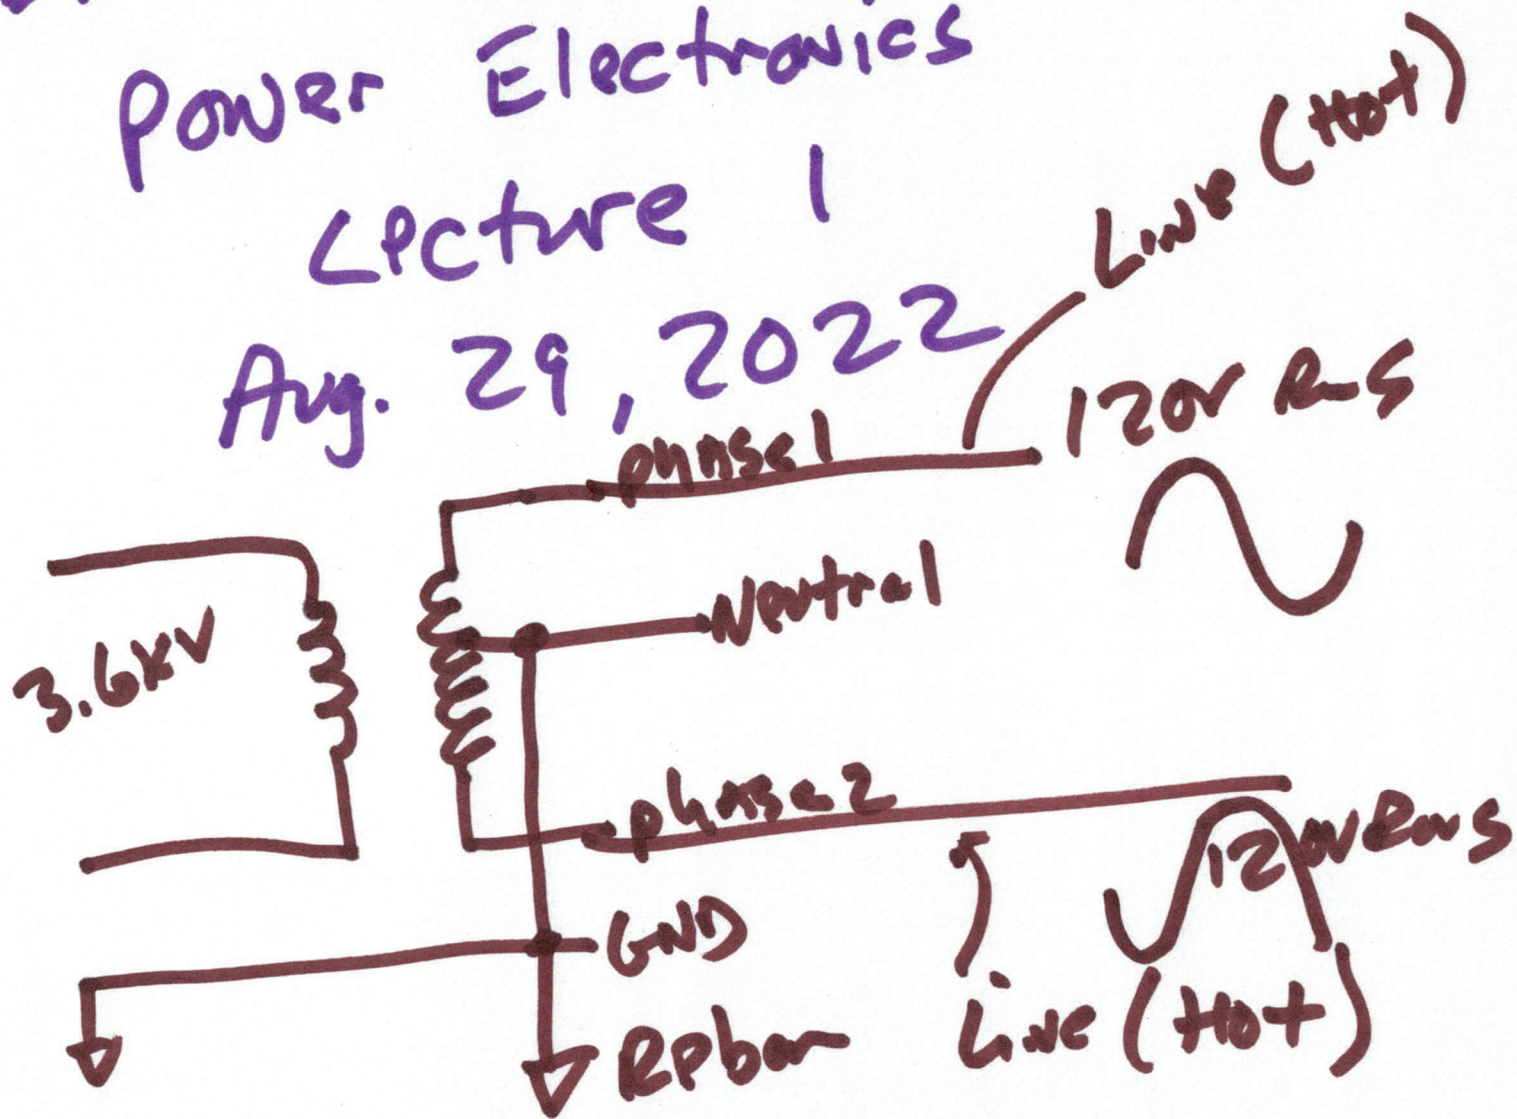 Power Electronics
Lecture 1
Aug. 29, 2022
Line (Hot)
120V RMS
phase 1
Neutral
3.6kV
phase 2
120V RMS
GND
Line (Hot)
Rebar